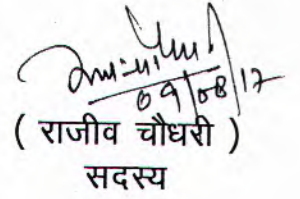 09/08/17
( राजीव चौधरी )
सदस्य